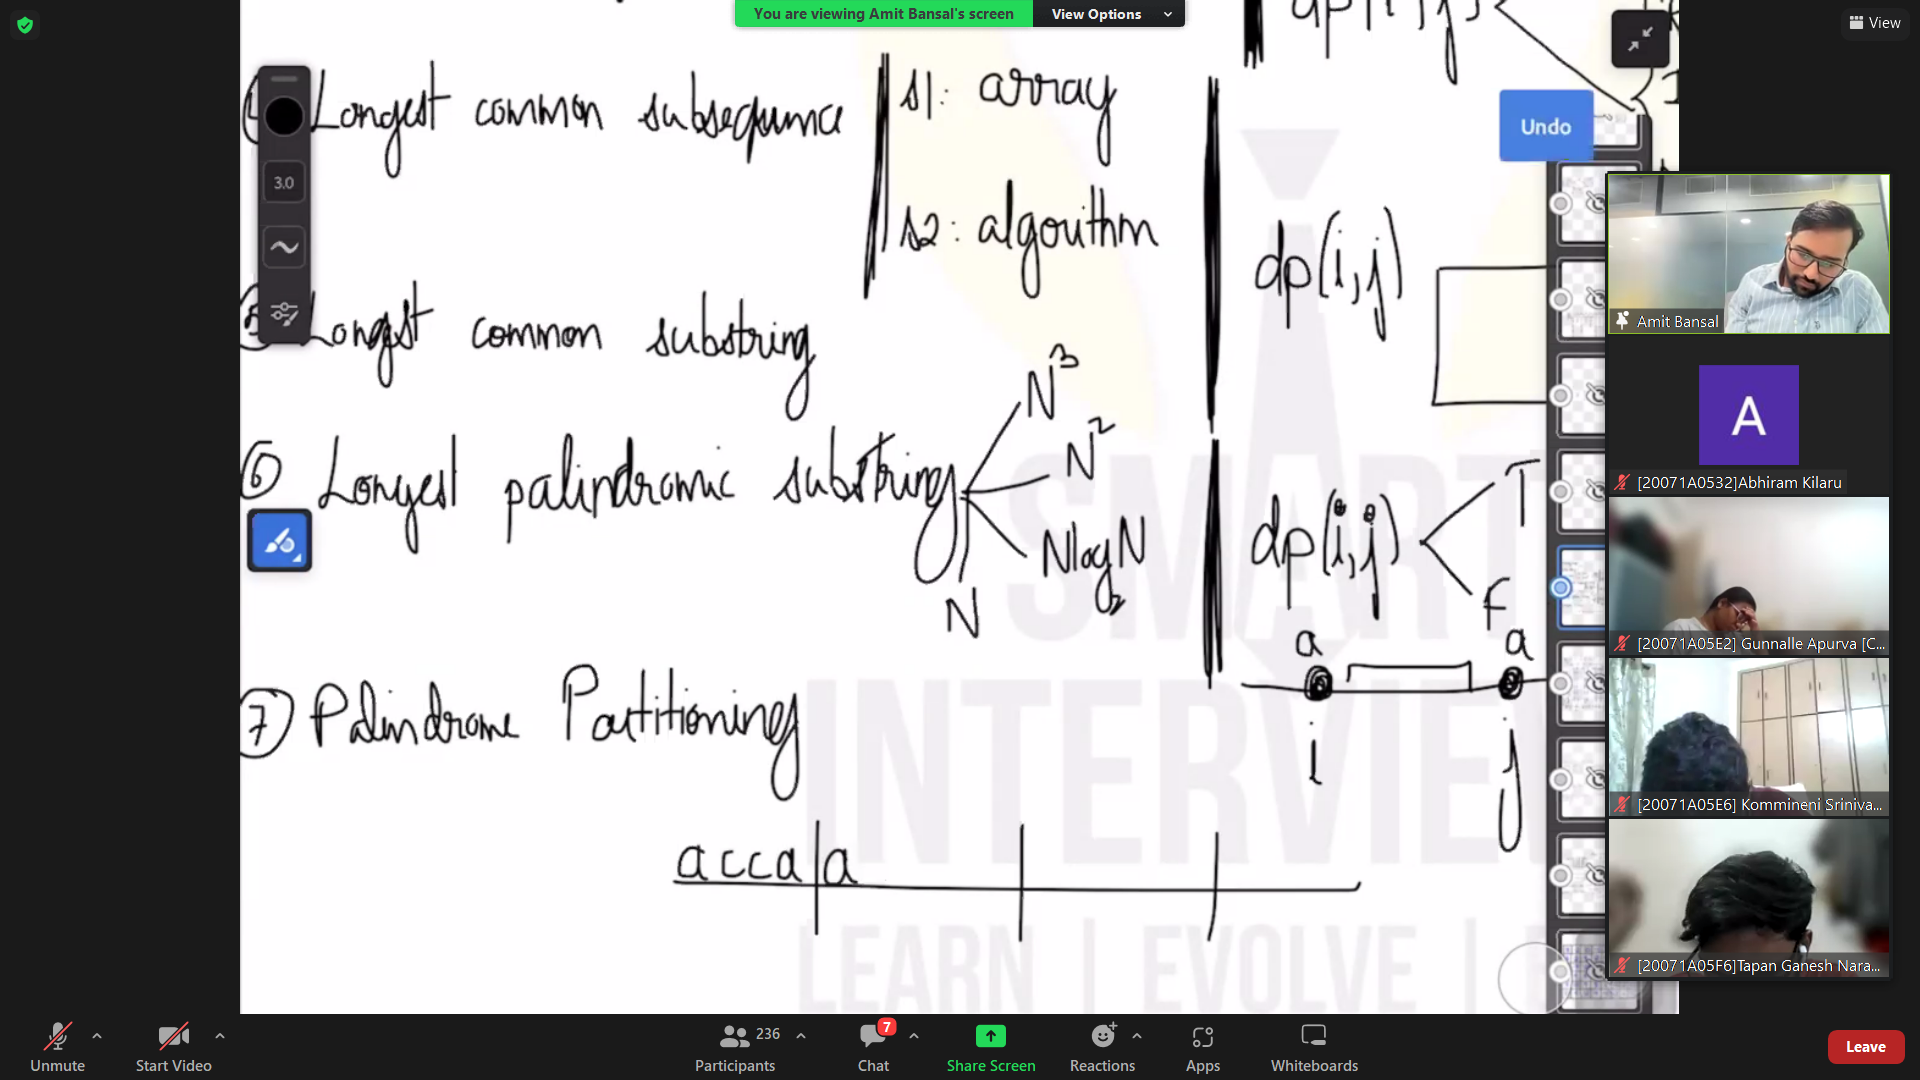 You are viewing Amit Bansal's screen
View Options
View
Undo
3.0
④ Longest common subsequence
s1: array
s2: algorithm
dp(i,j)
dp(i,j)
⑤ Longest common substring
⑥ Longest palindromic substring
N³
N²
Nlog₂N
N
T
F
a
a
i
j
⑦ Palindrome Partitioning
acca|a
SMART
INTERVIEW
LEARN | EVOLVE | E
Amit Bansal
A
[20071A0532]Abhiram Kilaru
[20071A05E2] Gunnalle Apurva [C...
[20071A05E6] Kommineni Sriniva...
[20071A05F6]Tapan Ganesh Nara...
Unmute
Start Video
236
Participants
7
Chat
Share Screen
Reactions
Apps
Whiteboards
Leave